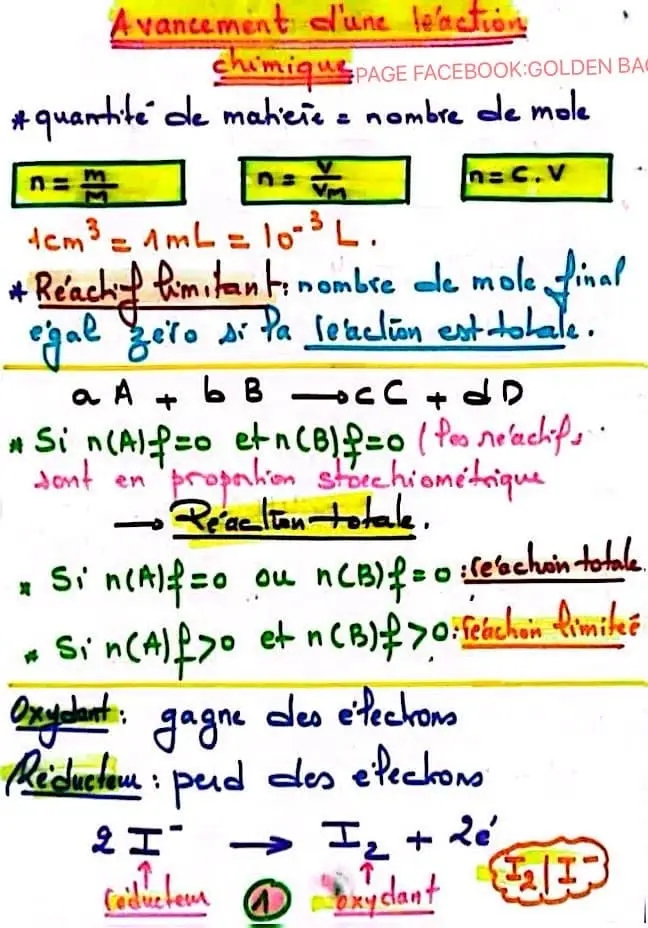 Avancement d'une réaction
chimique
PAGE FACEBOOK:GOLDEN BA
* quantité de matière = nombre de mole
n = m/M
n = V/Vm
n = C.V
1cm³ = 1mL = 10⁻³ L.
* Réactif limitant: nombre de mole final
égal zéro si la réaction est totale.
a A + b B → cC + dD
* Si n(A)f=0 et n(B)f=0 (les réactifs
sont en proportion stoechiométrique
→ Réaction totale.
* Si n(A)f=0 ou n(B)f=0: réaction totale.
* Si n(A)f>0 et n(B)f>0: réaction limitée
Oxydant: gagne des électrons
Réducteur: perd des électrons
2 I⁻ → I₂ + 2é
I₂/I⁻
↑ ↑
réducteur 1 oxydant